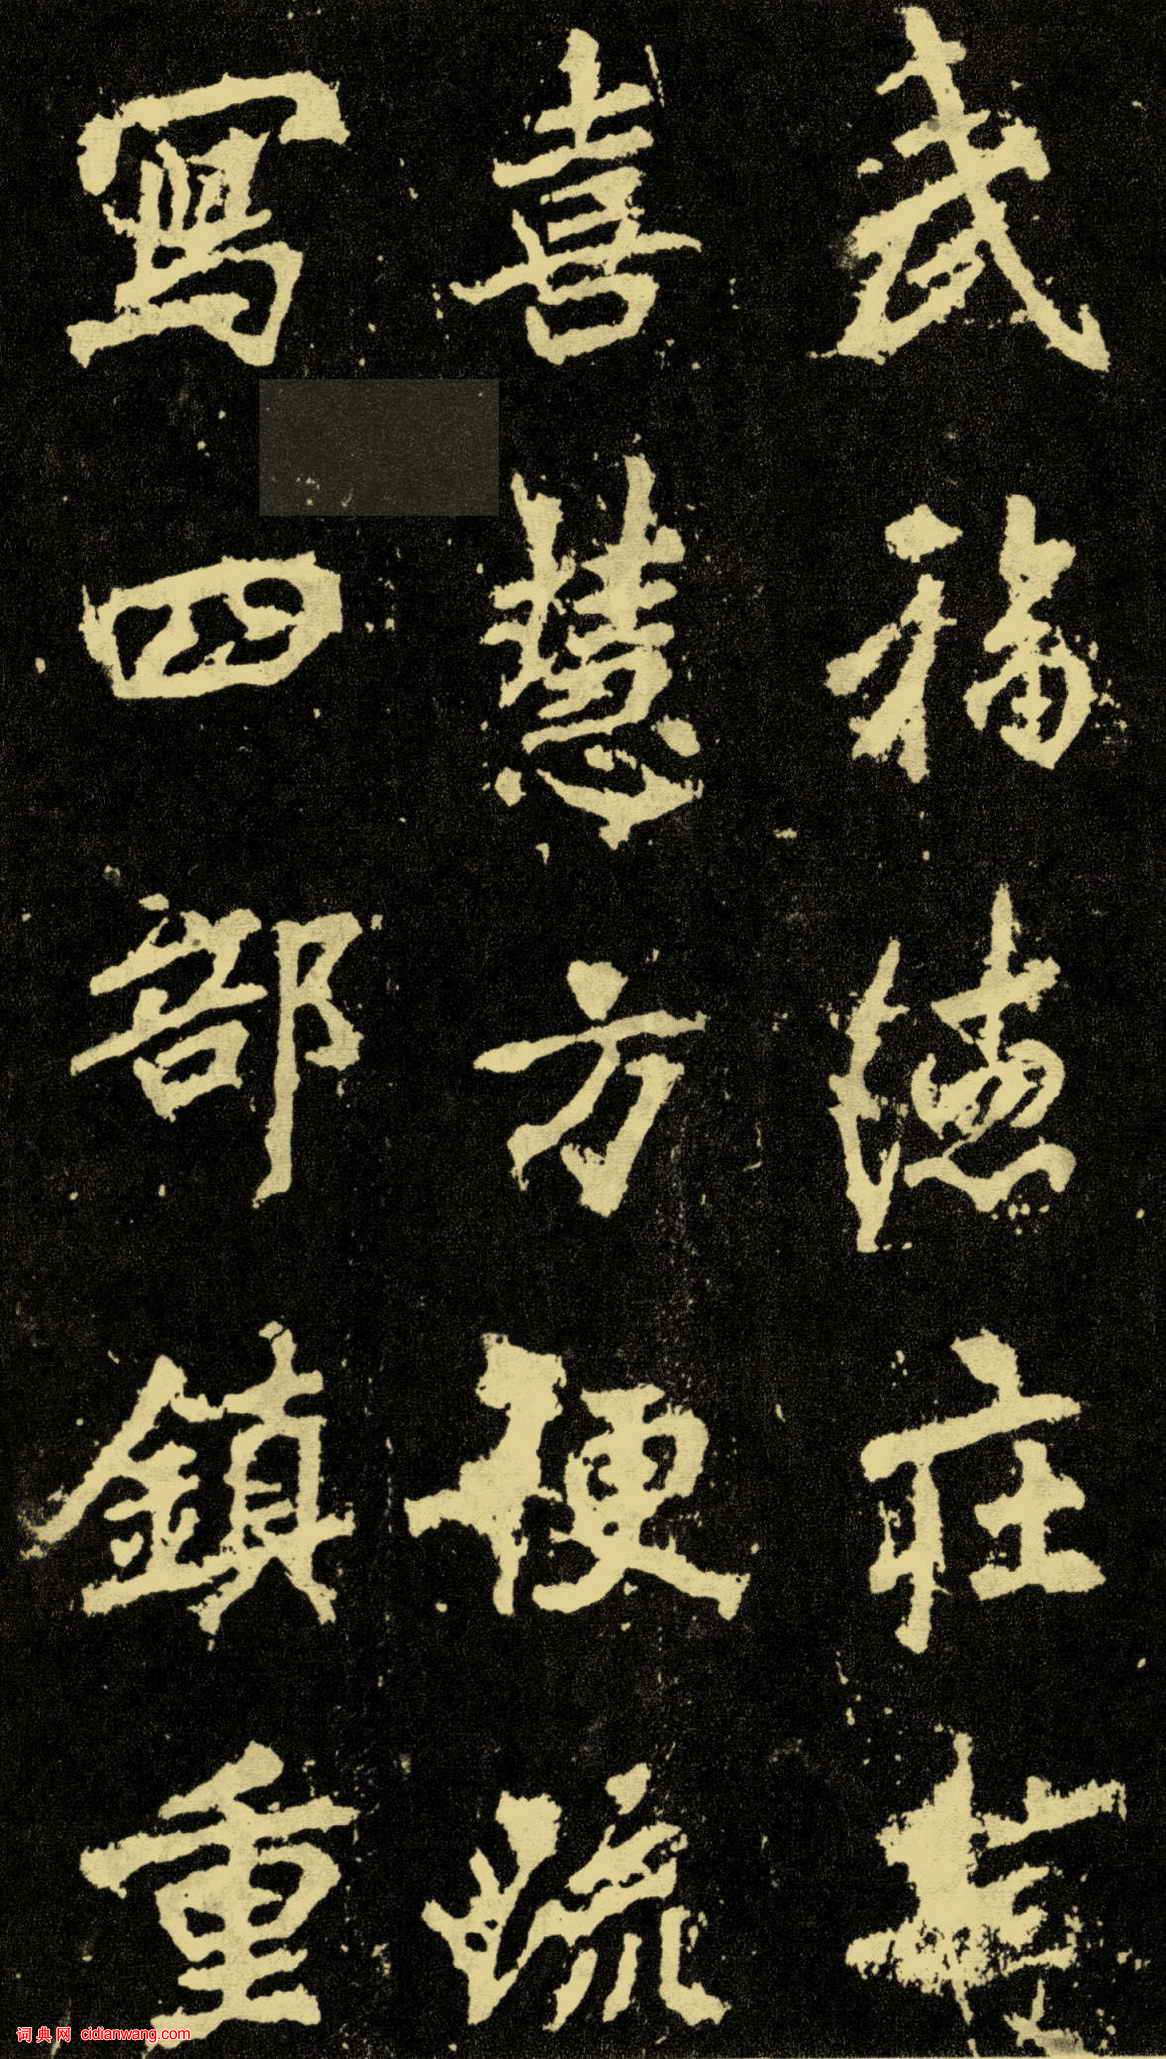 武福德莊共
喜慧方便疏
寫四部鎮重
词典网 cidianwang.com